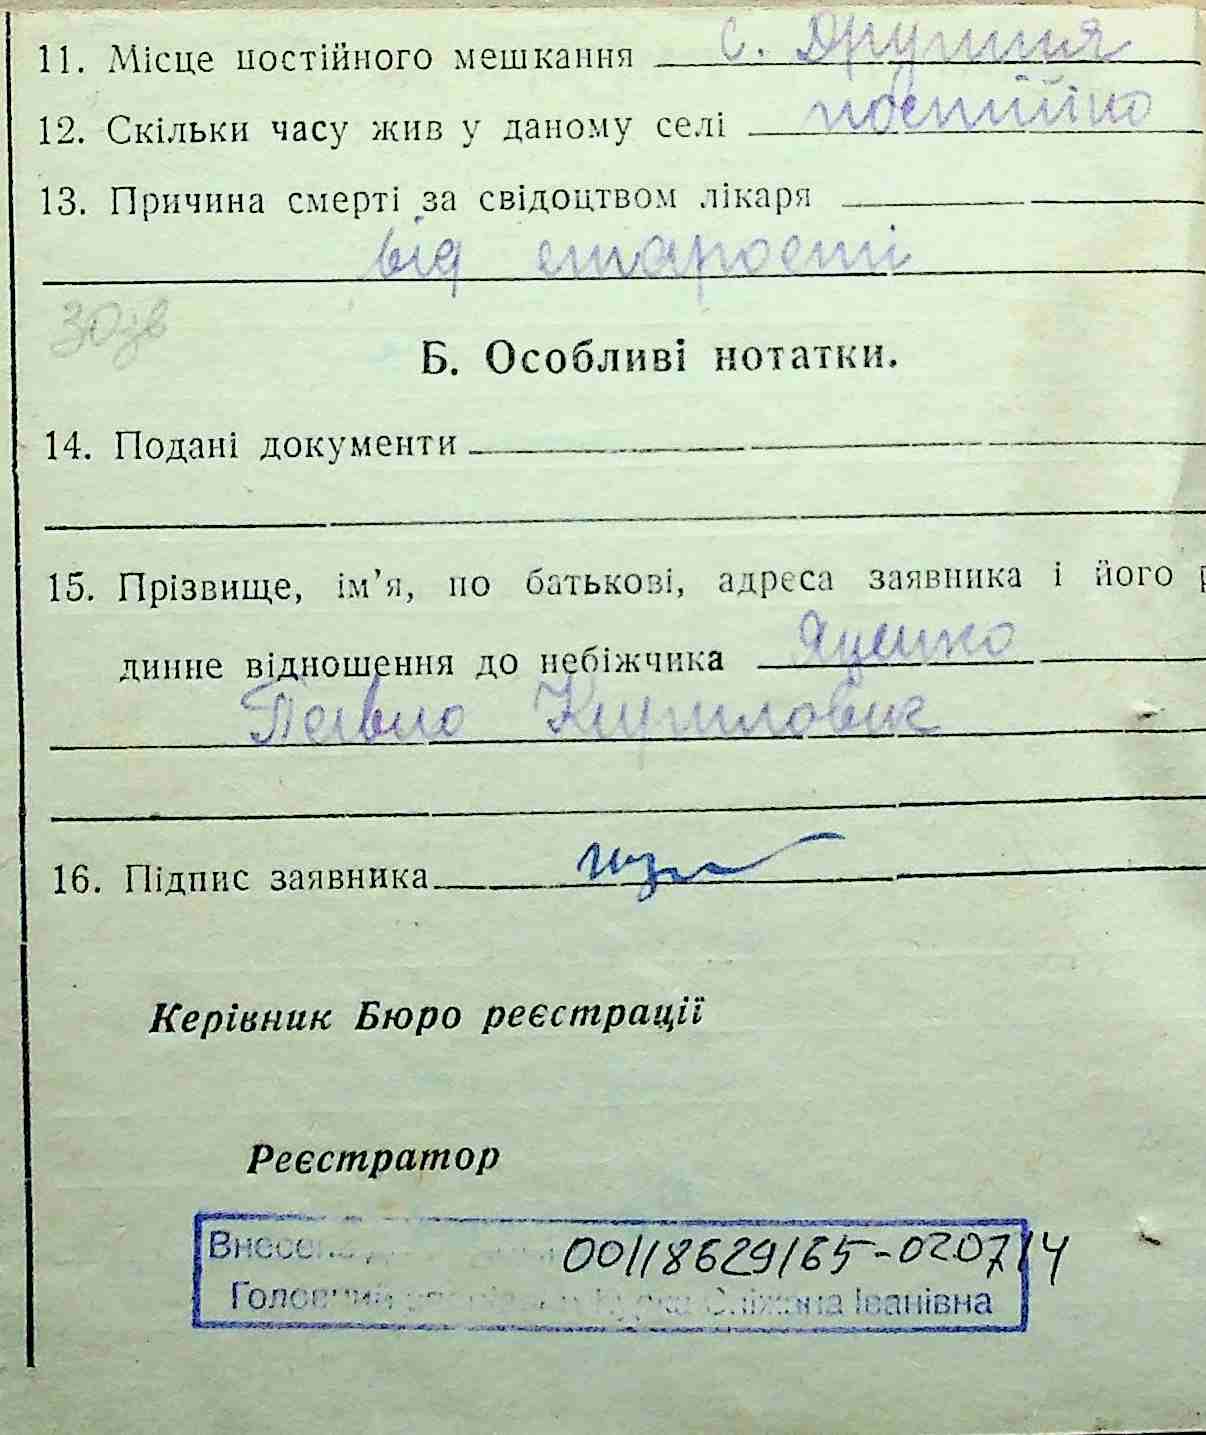 11. Місце постійного мешкання с. Друцня
12. Скільки часу жив у даному селі постійно
13. Причина смерті за свідоцтвом лікаря
від старости
Б. Особливі нотатки.
14. Подані документи
15. Прізвище, ім’я, по батькові, адреса заявника і його р
динне відношення до небіжчика Яценко
Павло Кирилович
16. Підпис заявника
Керівник Бюро реєстрації
Реєстратор
Внесено 00118629165-020714
Головний Іванівна